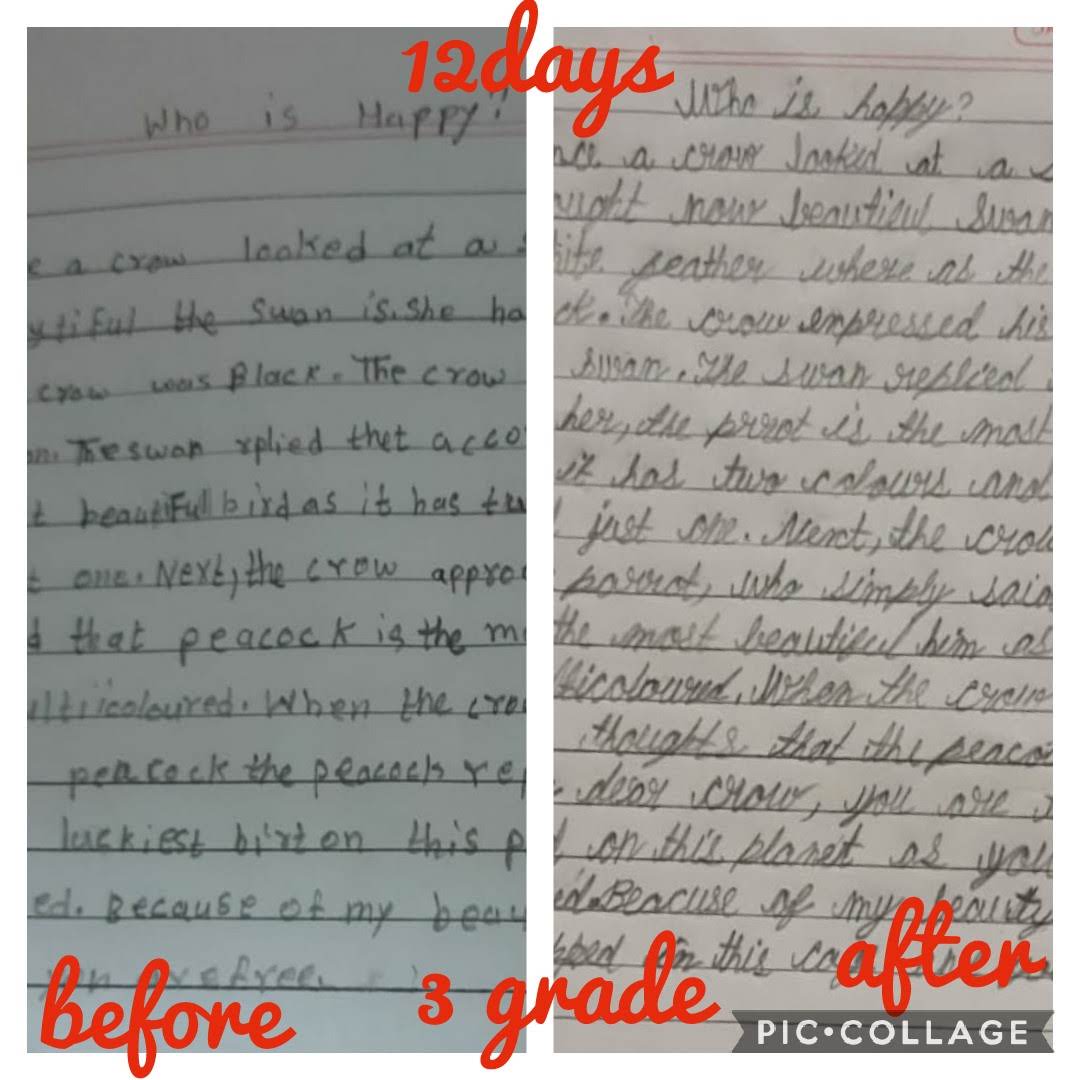 12days
Who is Happy?
e a crow looked at a s
utiful the swan is. She ha
crow was Black. The crow
on. The swan rplied thet acco
t beautiful bird as it has tw
t one. Next, the crow appro
d that peacock is the m
ulticoloured. When the cro
peacock the peacock rep
luckiest birt on this p
ed. Because of my beau
refree.
before
3 grade
Who is happy?
nce a crow looked at a s
ought now beautiful Swan
ite feather where as the
ck. The crow empressed his
swan. The swan replied
her, the prrot is the most
it has two colours and
just one. Next, the crow
parrot, who simply said
the most beautiful him as
lticoloured. When the crow
thoughts that the peaco
dear crow, you are
on this planet as you
ed. Beacuse of my beauty
pped in this ca
after
PIC•COLLAGE